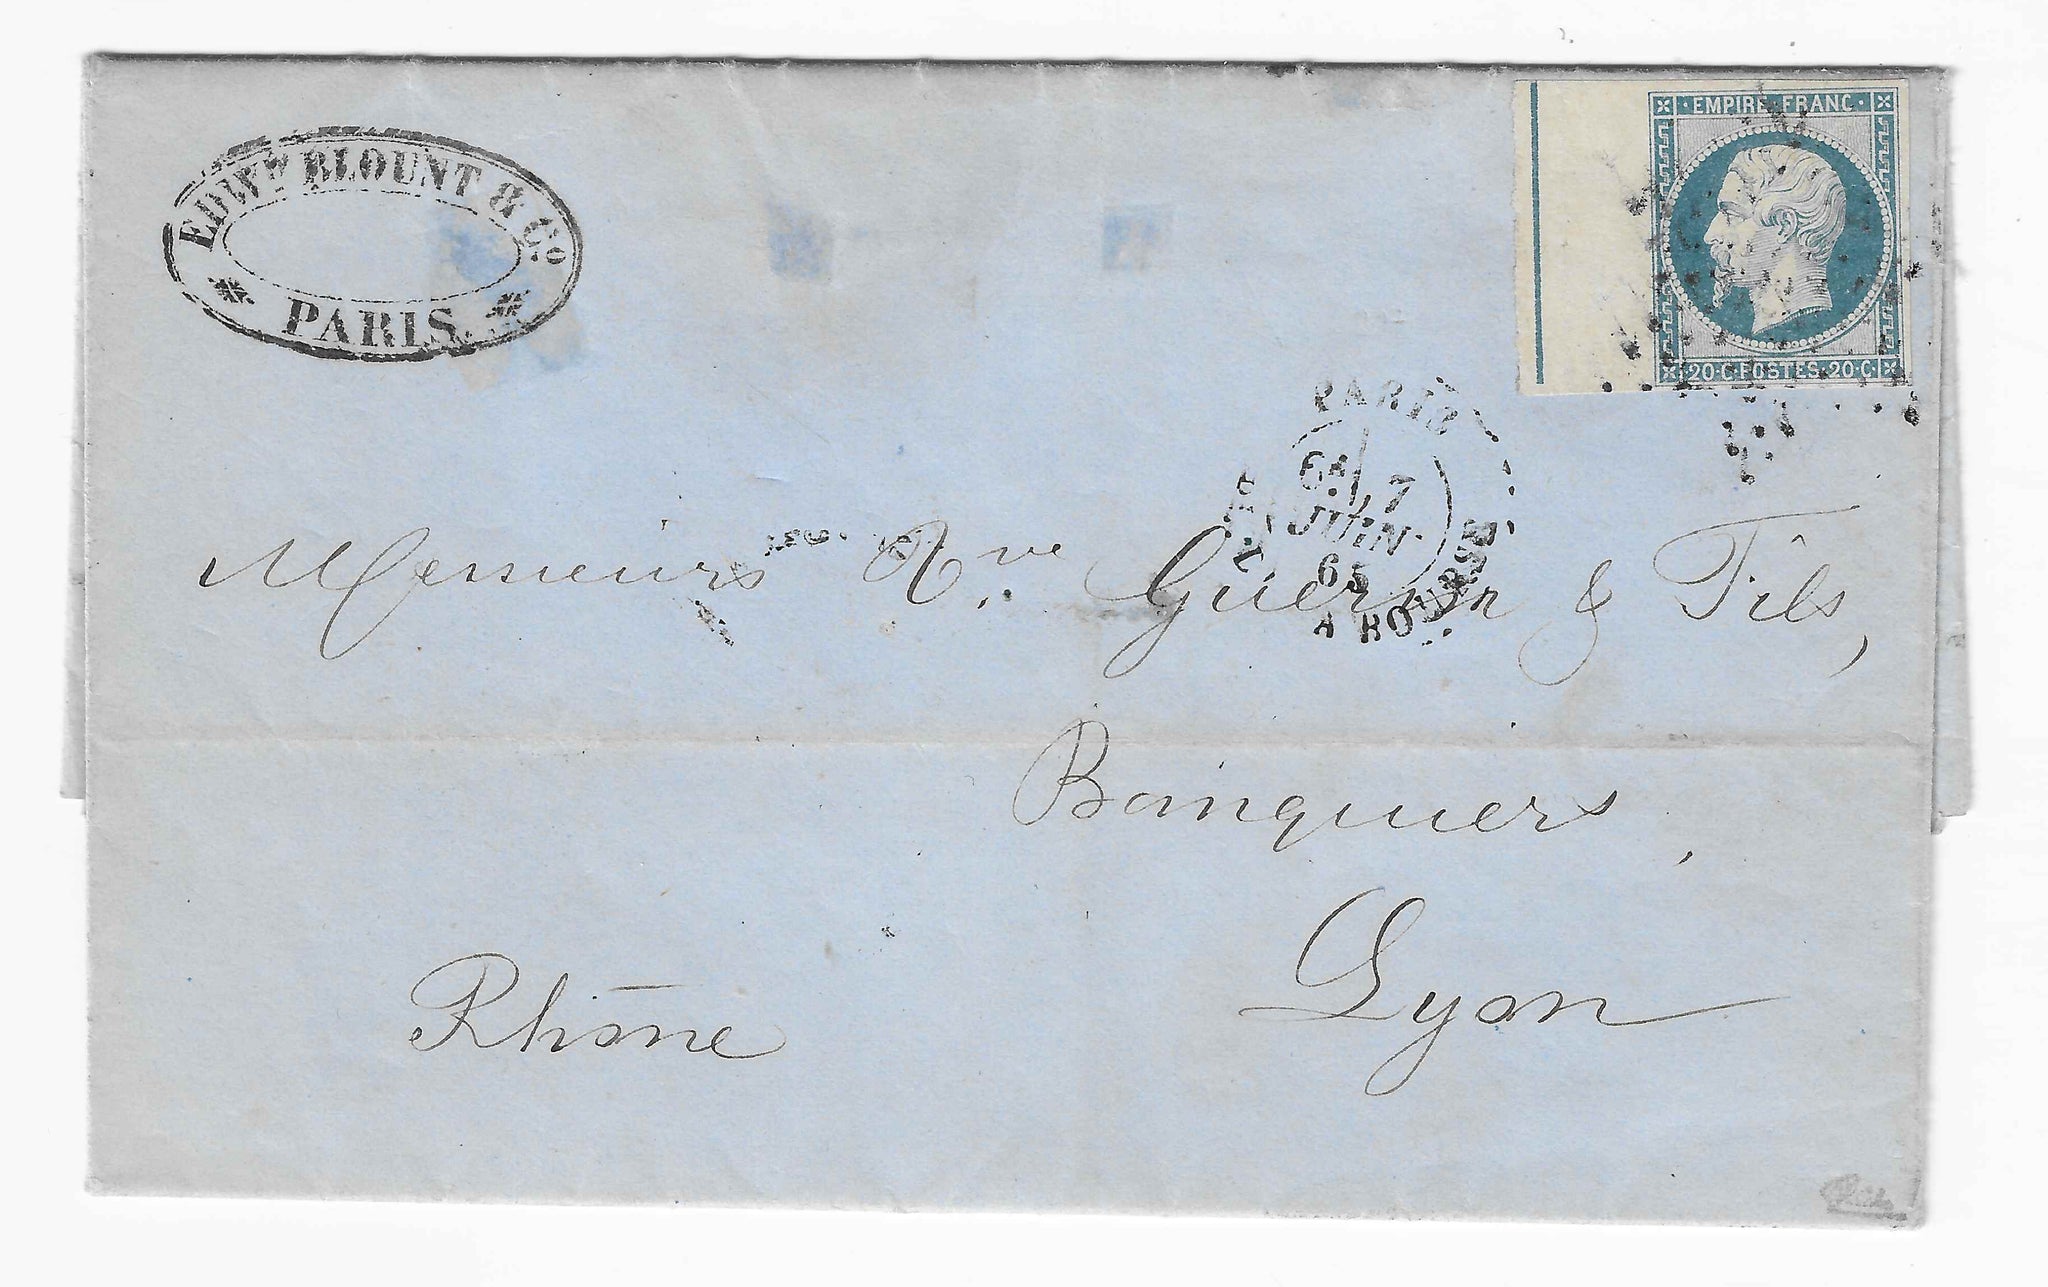 EDWD BLOUNT & Co
PARIS.
EMPIRE FRANC.
20.C. POSTES. 20.C.
PARIS
7
JUIN
65
BOURSE
Messieurs Vve Guerin & Fils,
Banquiers,
Lyon
Rhône